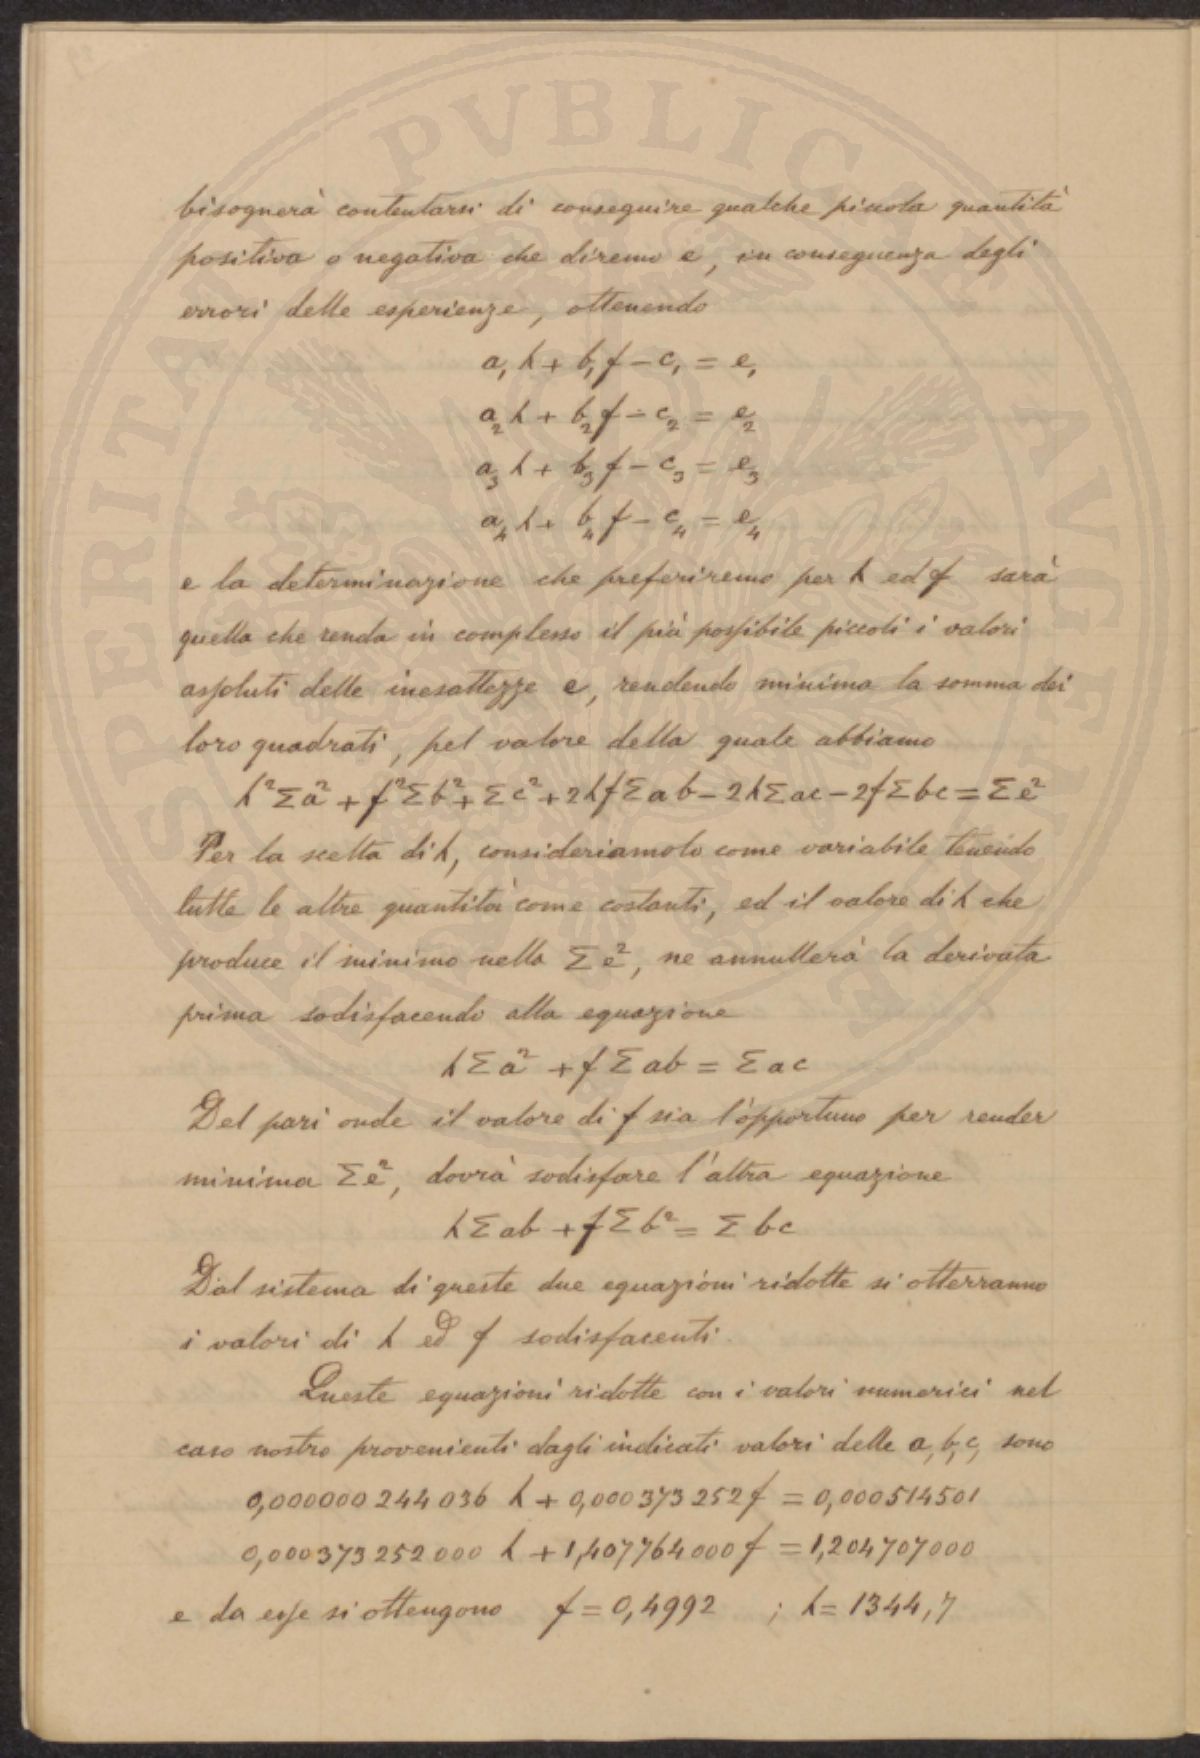 bisognerà contentarsi di conseguire qualche piccola quantità
positiva o negativa che diremo e, in conseguenza degli
errori delle esperienze, ottenendo
a₁h + b₁f − c₁ = e₁
a₂h + b₂f − c₂ = e₂
a₃h + b₃f − c₃ = e₃
a₄h + b₄f − c₄ = e₄
e la determinazione che preferiremo per h ed f sarà
quella che renda in complesso il più possibile piccoli i valori
assoluti delle inesattezze e, rendendo minima la somma dei
loro quadrati, pel valore della quale abbiamo
h²Σa² + f²Σb² + Σc² + 2hfΣab − 2hΣac − 2fΣbc = Σe²
Per la scelta di h, consideriamolo come variabile tenendo
tutte le altre quantità come costanti, ed il valore di h che
produce il minimo nella Σe², ne annullerà la derivata
prima sodisfacendo alla equazione
hΣa² + fΣab = Σac
Del pari onde il valore di f sia l'opportuno per render
minima Σe², dovrà sodisfare l'altra equazione
hΣab + fΣb² = Σbc
Dal sistema di queste due equazioni ridotte si otterranno
i valori di h ed f sodisfacenti.
Queste equazioni ridotte con i valori numerici nel
caso nostro provenienti dagli indicati valori delle a, b, c, sono
0,000000244036 h + 0,000373252 f = 0,000514501
0,000373252000 h + 1,407764000 f = 1,204707000
e da esse si ottengono f = 0,4992 ; h = 1344,7
SPERITAN PVBLICAE AVGENDAE